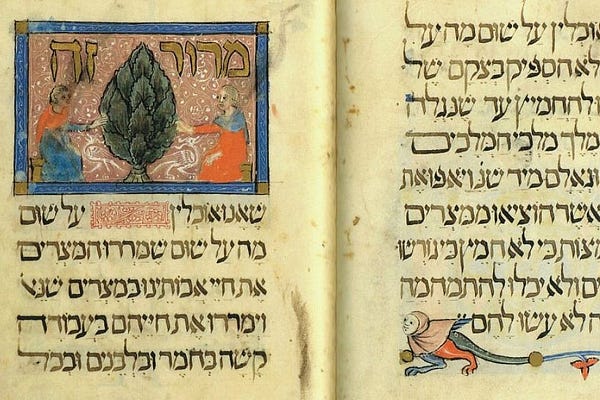 וכלין על שום מה על
לא הספיק בצקם של
להחמיץ עד שנגלה
מלך מלכי המלכים
וגאלם מיד שנ ויאפו את
אשר הוציאו ממצרים
מצות כי לא חמץ כי גורשו
ולא יכלו להתמהמה
לא עשו להם
מרור זה
שאנו אוכלין על שום
מה על שום שמררו המצרים
את חיי אבותינו במצרים שנא
וימררו את חייהם בעבודה
קשה בחמר ובלבנים ובכל